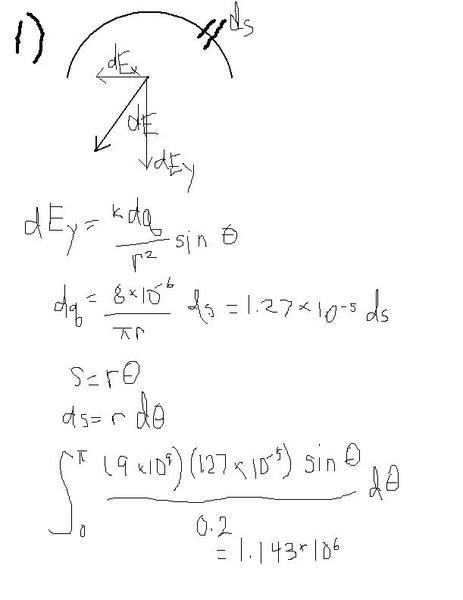 1)
ds
dEx
dE
dEy
dEy = k dq / r² sin θ
dq = 8×10⁻⁶ / πr ds = 1.27×10⁻⁵ ds
s=rθ
ds= r dθ
∫₀^π (9×10⁹)(1.27×10⁻⁵) sin θ / 0.2 dθ
= 1.143×10⁶